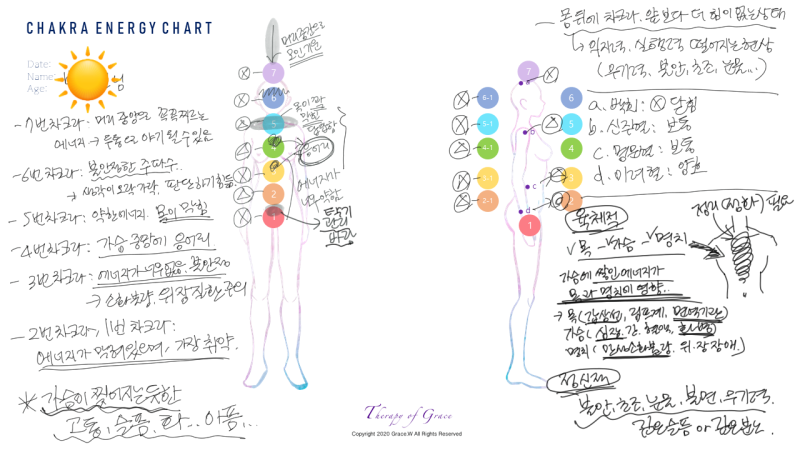 CHAKRA ENERGY CHART
Date:
Name:
Age:
님
-7번 차크라: 머리 중앙으로 콕콕 찌르는
에너지 → 두통으로 야기될 수 있음
-6번 차크라: 불안정한 주파수..
→ 생각이 오락가락, 판단하기 힘듦
-5번 차크라: 약한 에너지. 목이 막힘
-4번 차크라: 가슴 중앙이 응어리
-3번차크라: 에너지가 너무 없음. 불안정
→ 소화불량, 위장질환 주의
-2번 차크라, 1번 차크라:
에너지가 막혀있으며, 가장 취약.
* 가슴이 찢어지는듯한
고통, 슬픔, 화... 아픔...
머리중앙으로
7
6
5
4
2
1
목이 꽉
막힌
답답함
응어리
에너지가
너무 약함
7
6-1
5-1
4-1
1
6
5
4
3
2
c
d
Therapy of Grace
Copyright 2020 Grace.W All Rights Reserved
- 몸 뒤에 차크라. 앞보다 더 힘이 없는 상태
↳ 의지력, 실행력 떨어지는 현상
(무기력, 불안, 초조, 눈물...)
a. 백회: ⓧ 닫힘
b. 신주혈: 보통
c. 명문혈: 보통
d. 미려혈: 양호
육체적
정화 필요
√목 √가슴 √명치
가슴에 쌓인 에너지가
목과 명치에 영향..
→ 목(갑상선, 림프계, 면역기관)
가슴( 심장. 간.
명치( 만성소화불량, 위.장 장애.)
정신체
불안, 초조, 눈물, 불면, 무기력.
깊은 슬픔 or 깊은 분노.